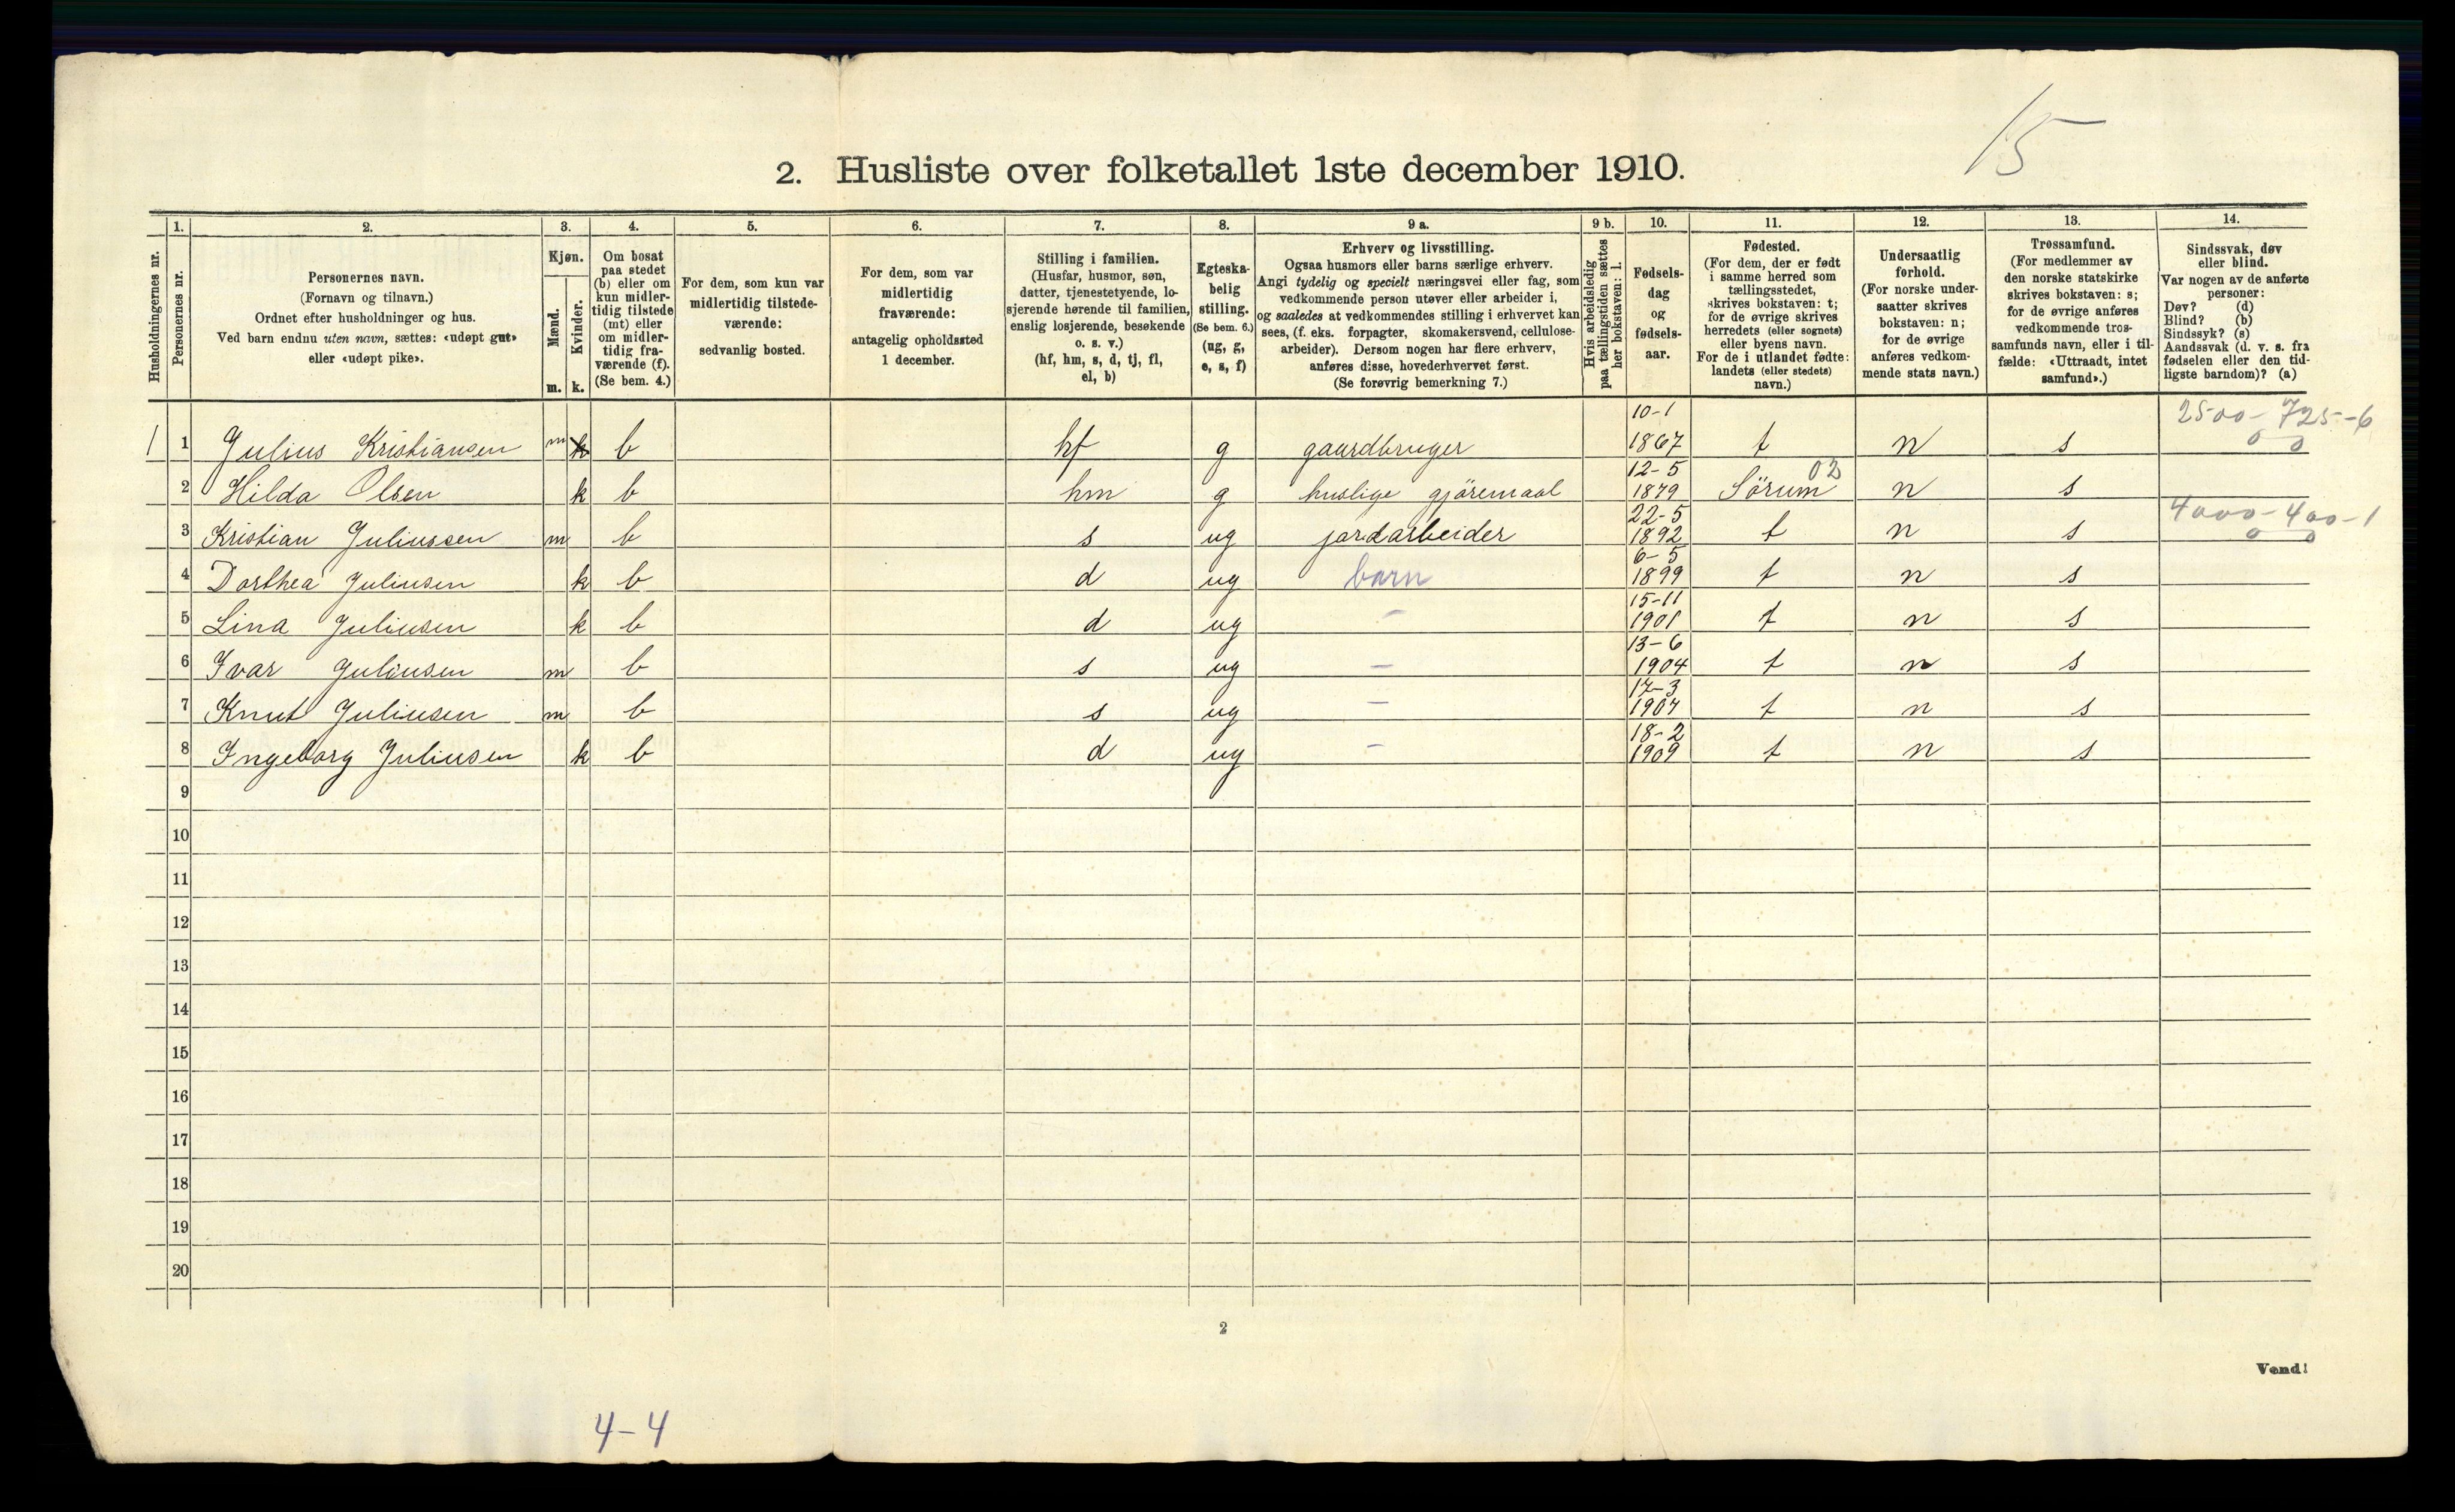 15
2. Husliste over folketallet 1ste december 1910.
Husholdningernes nr.
1.
Personernes nr.
2.
Personernes navn.
(Fornavn og tilnavn.)
Ordnet efter husholdninger og hus.
Ved barn endnu uten navn, sættes: «udøpt gut»
eller «udøpt pike».
3.
Kjøn.
Mænd.
Kvinder.
m. k.
4.
Om bosat
paa stedet
(b) eller om
kun midler-
tidig tilstede
(mt) eller
om midler-
tidig fra-
værende (f).
(Se bem. 4.)
5.
For dem, som kun var
midlertidig tilstede-
værende:
sedvanlig bosted.
6.
For dem, som var
midlertidig
fraværende:
antagelig opholdssted
1 december.
7.
Stilling i familien.
(Husfar, husmor, søn,
datter, tjenestetyende, lo-
sjerende hørende til familien,
enslig losjerende, besøkende
o. s. v.)
(hf, hm, s, d, tj, fl,
el, b)
8.
Egteska-
belig
stilling.
(Se bem. 6.)
(ug, g,
e, s, f)
9 a.
Erhverv og livsstilling.
Ogsaa husmors eller barns særlige erhverv.
Angi tydelig og specielt næringsvei eller fag, som
vedkommende person utøver eller arbeider i,
og saaledes at vedkommendes stilling i erhvervet kan
sees, (f. eks. forpagter, skomakersvend, cellulose-
arbeider). Dersom nogen har flere erhverv,
anføres disse, hovederhvervet først.
(Se forøvrig bemerkning 7.)
9 b.
Hvis arbeidsledig
paa tællingstiden sættes
her bokstaven: l.
10.
Fødsels-
dag
og
fødsels-
aar.
11.
Fødested.
(For dem, der er født
i samme herred som
tællingsstedet,
skrives bokstaven: t;
for de øvrige skrives
herredets (eller sognets)
eller byens navn.
For de i utlandet fødte:
landets (eller stedets)
navn.)
12.
Undersaatlig
forhold.
(For norske under-
saatter skrives
bokstaven: n;
for de øvrige
anføres vedkom-
mende stats navn.)
13.
Trossamfund.
(For medlemmer av
den norske statskirke
skrives bokstaven: s;
for de øvrige anføres
vedkommende tros-
samfunds navn, eller i til-
fælde: «Uttraadt, intet
samfund».)
14.
Sindssvak, døv
eller blind.
Var nogen av de anførte
personer:
Døv? (d)
Blind? (b)
Sindssyk? (s)
Aandssvak (d. v. s. fra
fødselen eller den tid-
ligste barndom)? (a)
10-1 2500-725-6
1 1 Julius Kristiansen m k b hf g gaardbruger 1867 t n s 0 0
12-5 02
2 Hilda Olsen k b hm g huslige gjöremaal 1879 Sörum n s
22-5 4000-400-1
3 Kristian Juliussen m b s ug jordarbeider 1892 t n s 0 0
6-5
4 Dorthea Juliusen k b d ug barn 1899 t n s
15-11
5 Lina Juliusen k b d ug - 1901 t n s
13-6
6 Ivar Juliusen m b s ug - 1904 t n s
17-3
7 Knut Juliusen m b s ug - 1907 t n s
18-2
8 Ingeborg Juliusen k b d ug - 1909 t n s
9
10
11
12
13
14
15
16
17
18
19
20
2
Vend!
4-4